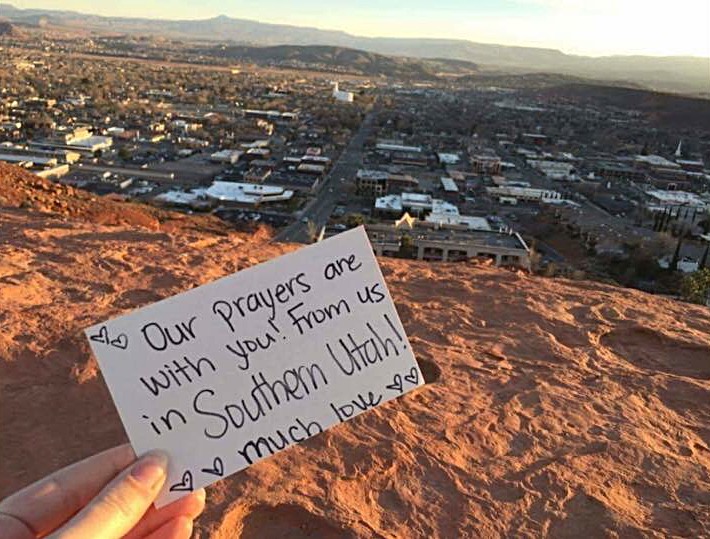 Our Prayers are
with you! From us
in Southern Utah!
much love